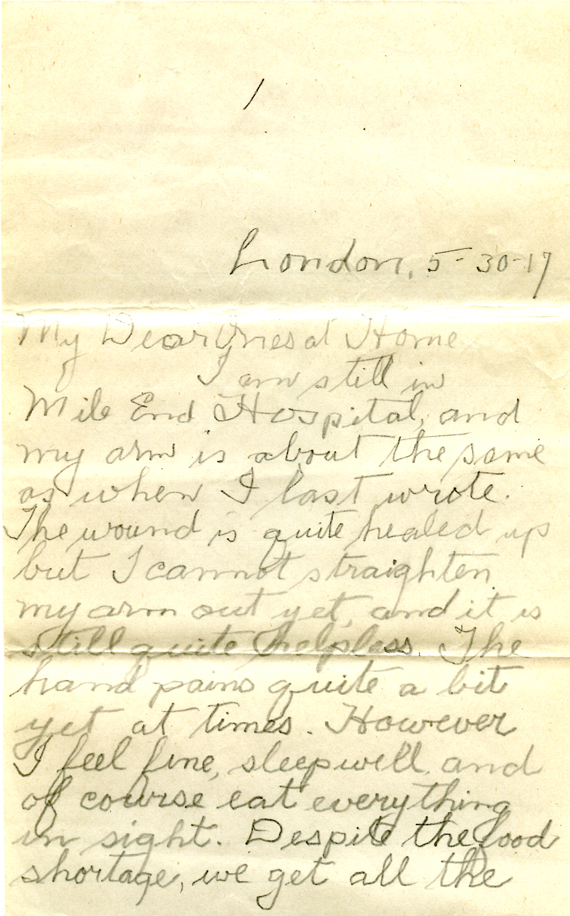 1
London, 5-30-17
My Dear Ones at Home
I am still in
Mile End Hospital, and
my arm is about the same
as when I last wrote.
The wound is quite healed up
but I cannot straighten
my arm out yet, and it is
still quite helpless. The
hand pains quite a bit
yet at times. However
I feel fine, sleep well, and
of course eat everything
in sight. Despite the food
shortage, we get all the